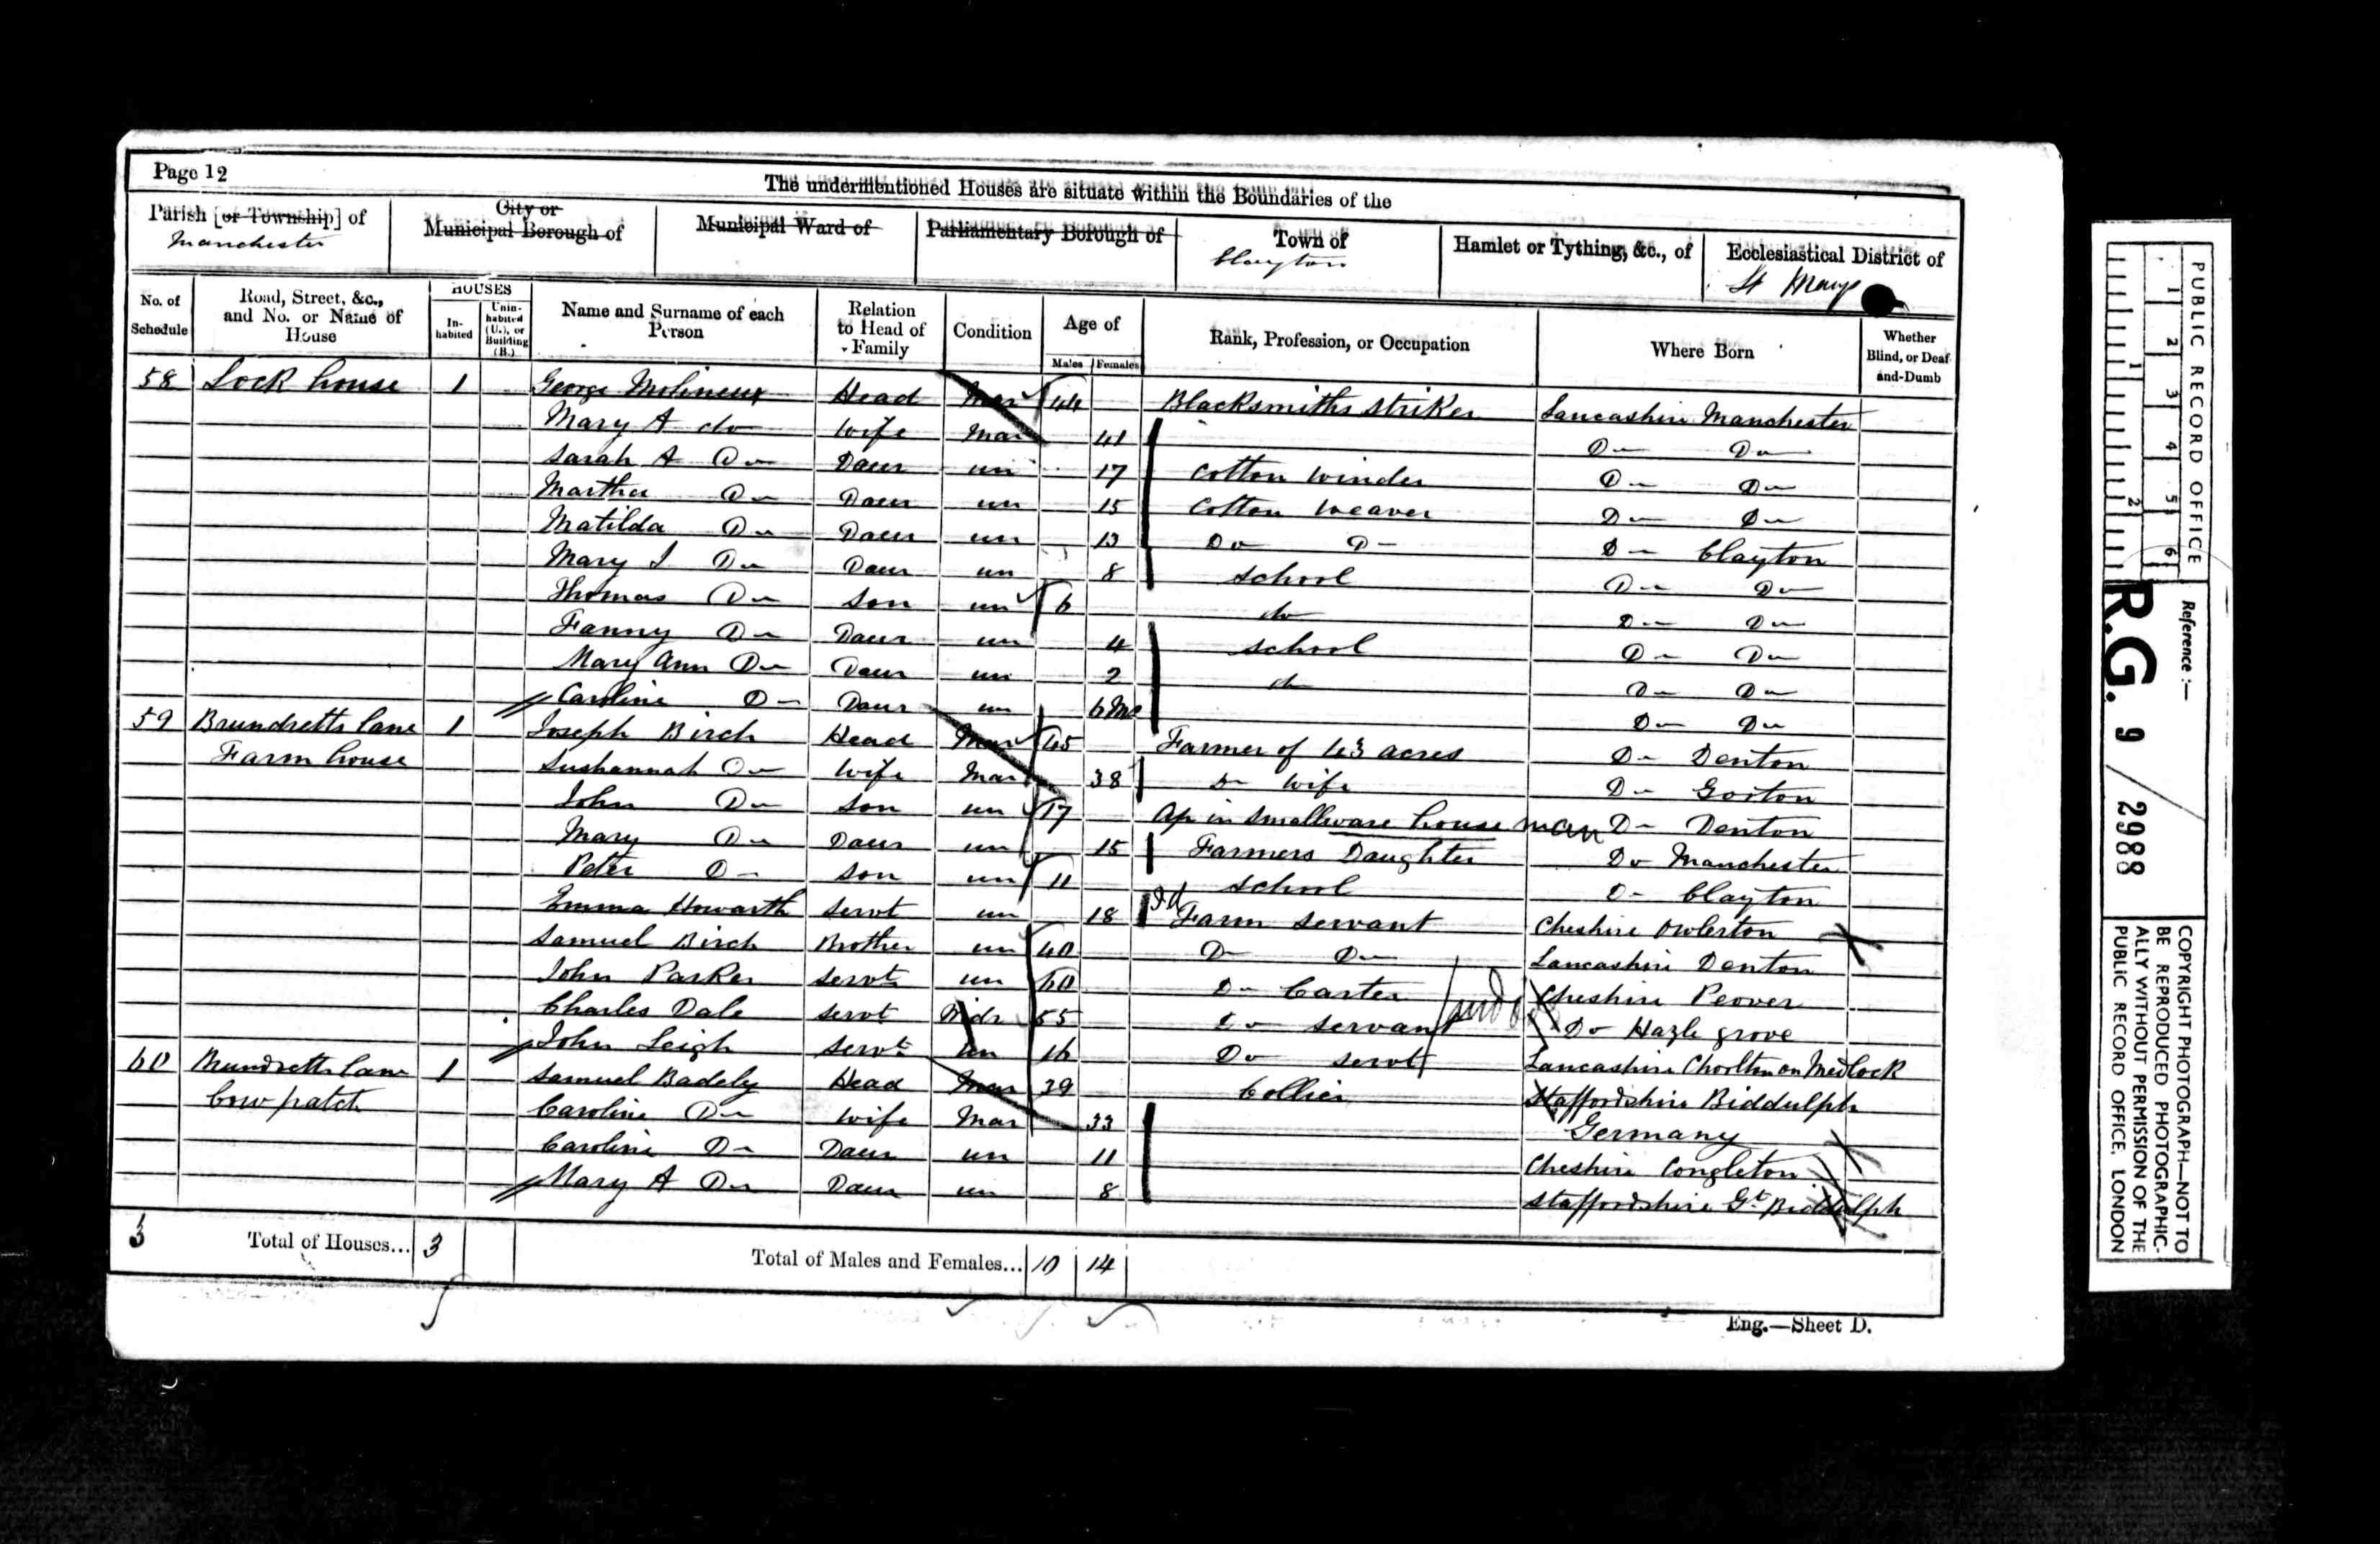 Page 12
The undermentioned Houses are situate within the Boundaries of the
Parish [or Township] of
Manchester
City or
Municipal Borough of
Municipal Ward of
Parliamentary Borough of
Town of
Clayton
Hamlet or Tything, &c., of
Ecclesiastical District of
St Marys
No. of
Schedule
Road, Street, &c.,
and No. or Name of
House
HOUSES
In-
habited
Unin-
habited
(U.), or
Building
(B.)
Name and Surname of each
Person
Relation
to Head of
Family
Condition
Age of
Males
Females
Rank, Profession, or Occupation
Where Born
Whether
Blind, or Deaf-
and-Dumb
58 Lock house 1 George Molineux Head Mar 44 Blacksmiths Striker Lancashire Manchester
Mary A do Wife Mar 41 Do Do
Sarah A Do Daur un 17 Cotton Winder Do Do
Martha Do Daur un 15 Cotton Weaver Do Do
Matilda Do Daur un 13 Do Do Do Clayton
Mary J Do Daur un 8 School Do Do
Thomas Do Son un 6 do Do Do
Fanny Do Daur un 4 School Do Do
Mary Ann Do Daur un 2 do Do Do
Caroline Do Daur un 6 Mo Do Do
59 Brundretts lane 1 Joseph Birch Head Mar 45 Farmer of 43 acres Do Denton
Farm house Sushannah Do Wife Mar 38 Do Wife Do Gorton
John Do Son un 17 Ap in Smallware house man Do Denton
Mary Do Daur un 15 Farmers Daughter Do Manchester
Peter Do Son un 11 School Do Clayton
Emma Howarth Servt un 18 Farm Servant Cheshire Owlerton
Samuel Birch Brother un 40 Do Do Lancashire Denton
John Parker Servt un 60 Do Carter Cheshire Peover
Charles Dale Servt Widr 55 Do Servant Do Hazle grove
John Leigh Servt un 16 Do Servt Lancashire Chorlton on Medlock
60 Brundretts lane 1 Samuel Badely Head Mar 39 Collier Staffordshire Biddulph
Cow patch Caroline Do Wife Mar 33 Germany
Caroline Do Daur un 11 Cheshire Congleton
Mary A Do Daur un 8 Staffordshire Gt Biddulph
3 Total of Houses... 3 Total of Males and Females... 10 14
Eng.—Sheet D.
PUBLIC RECORD OFFICE
1 2 3 4 5 6
1 2
Reference :—
R.G. 9 / 2988
COPYRIGHT PHOTOGRAPH—NOT TO
BE REPRODUCED PHOTOGRAPHIC-
ALLY WITHOUT PERMISSION OF THE
PUBLIC RECORD OFFICE, LONDON